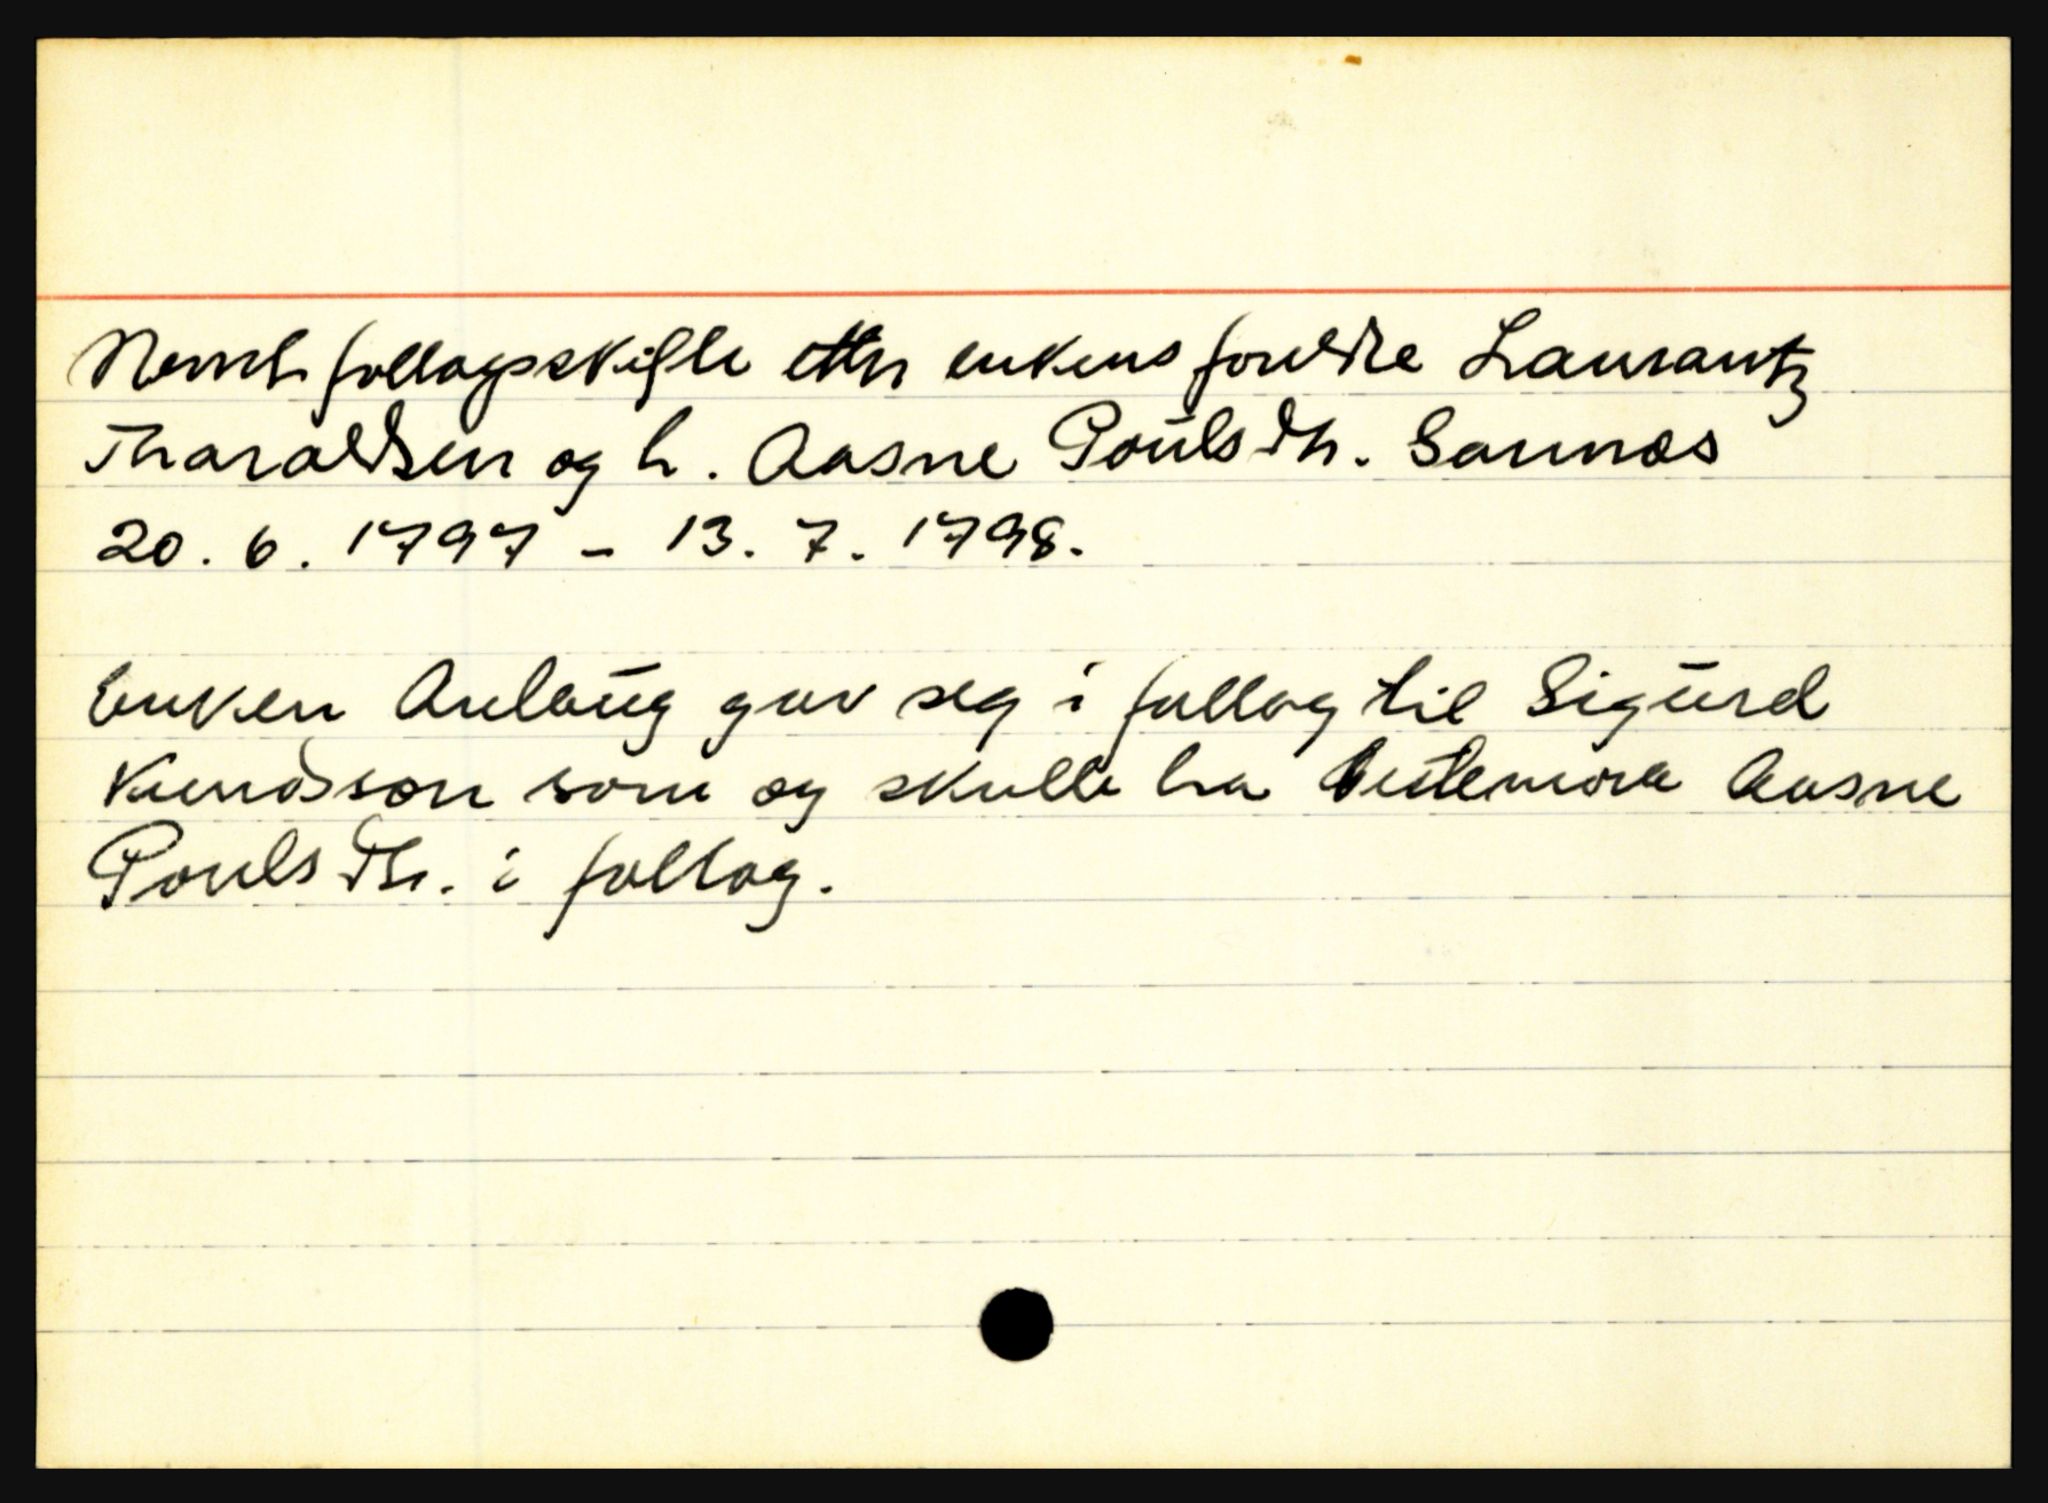 Nemnt follagsskifte etter enkens foreldre Laurantz
Tharaldsen og h. Aasne Poulsdtr. Sannæs
20. 6. 1797 - 13. 7. 1798.
Enken Anlaug gav seg i follog til Sigurd
Knudsson som og skulle ha bestemora Aasne
Poulsdtr. i follog.